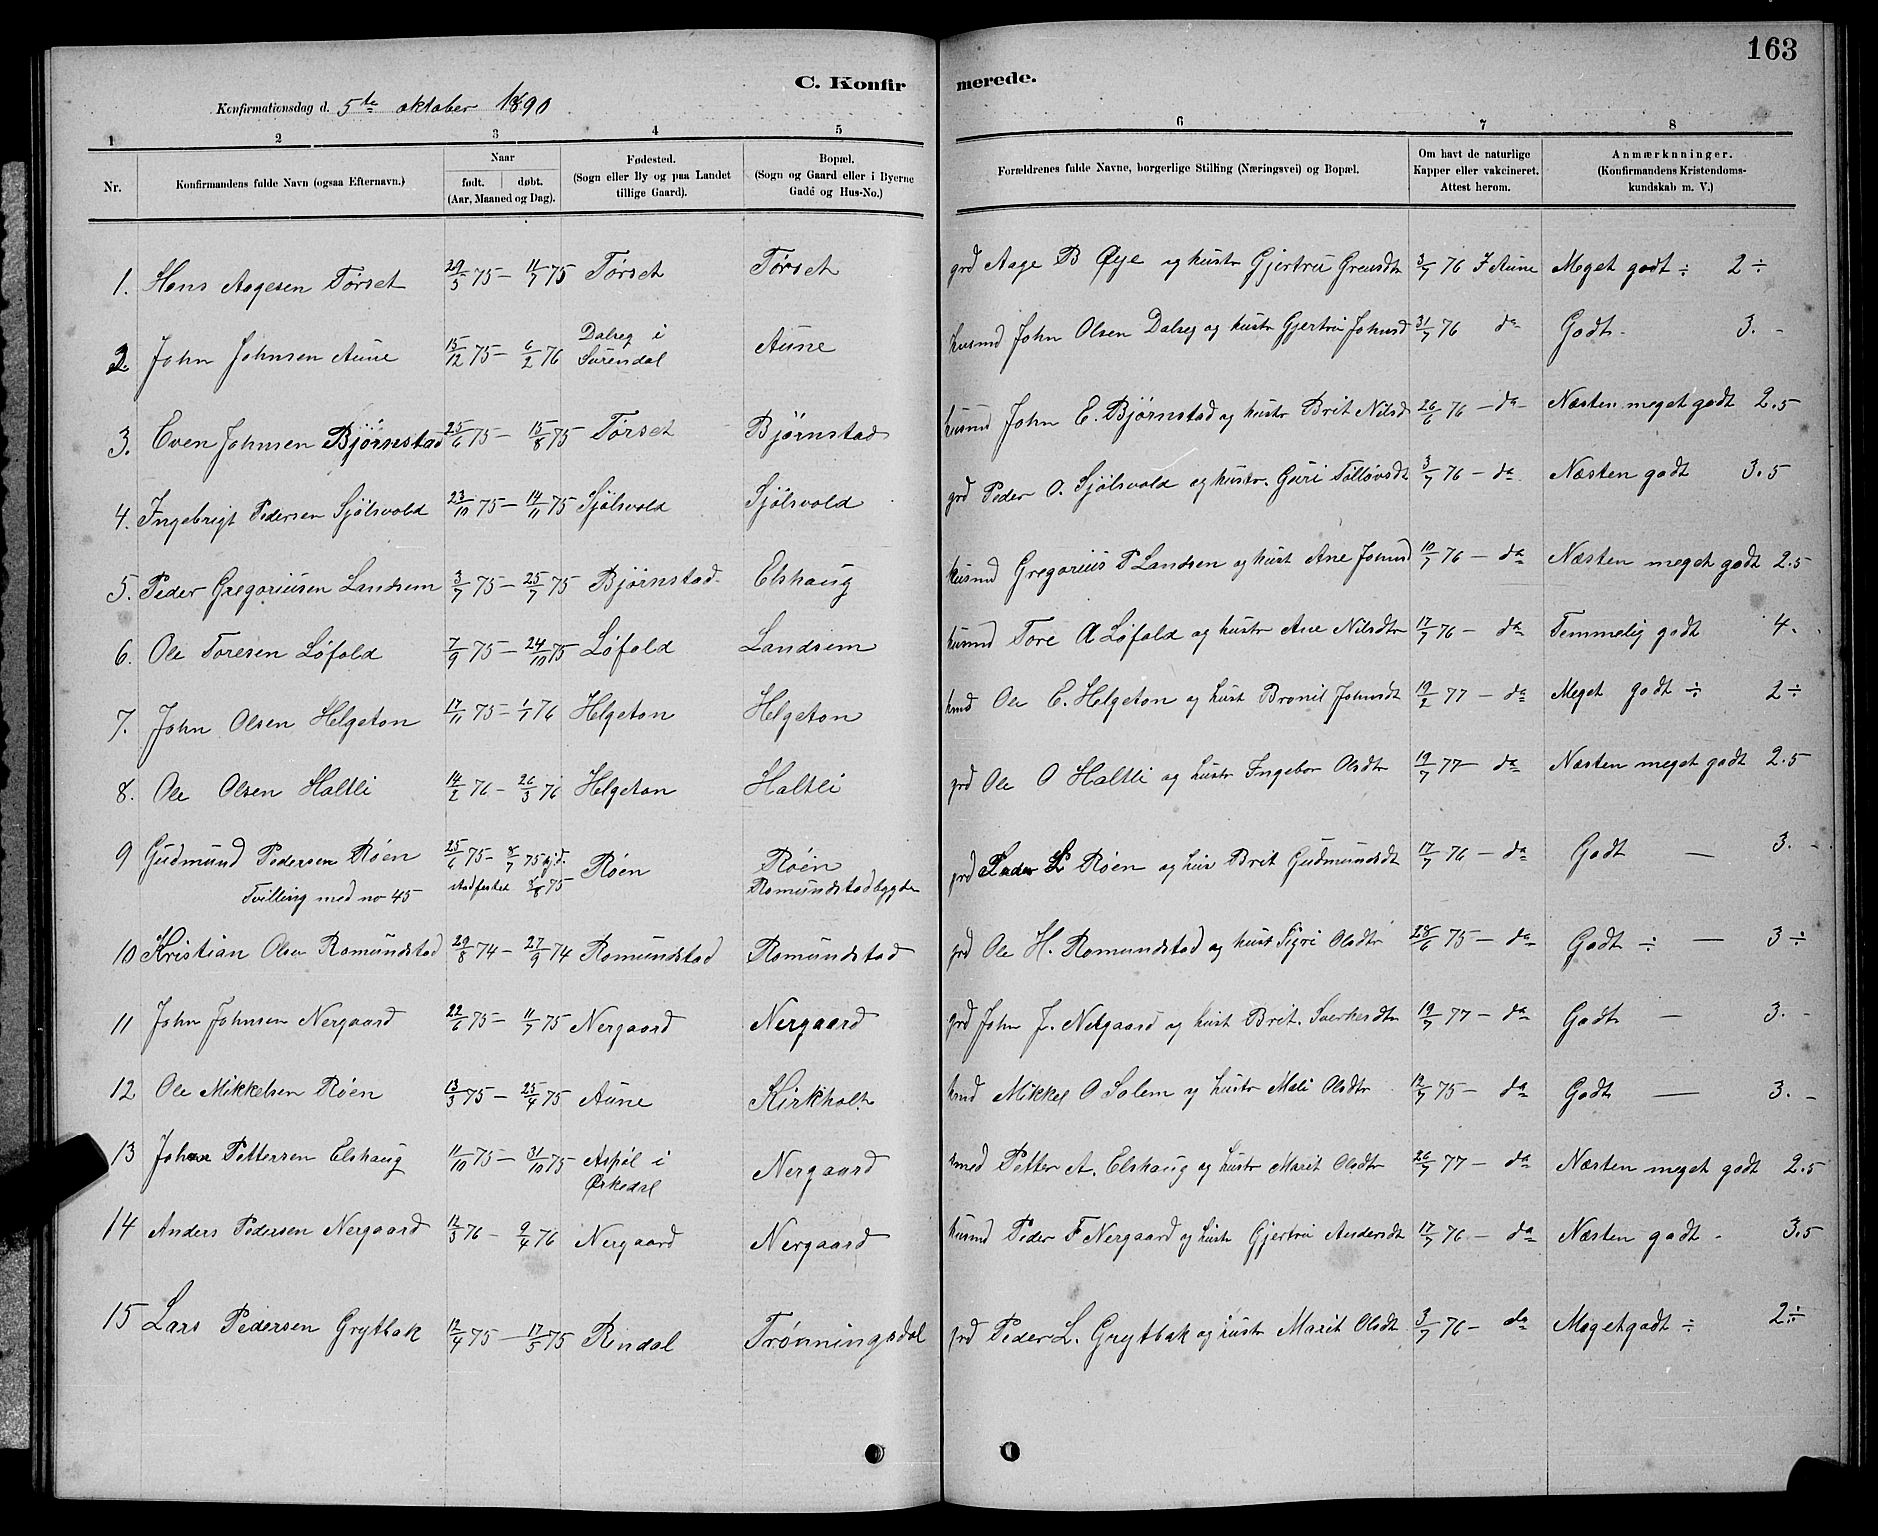 163
C. Konfirmerede.
Konfirmationsdag d. 5te oktober 1890
1 2 3 4 5 6 7 8
Nr. | Konfirmandens fulde Navn (ogsaa Efternavn.) | Naar født. døbt. (Aar, Maaned og Dag). | Fødested. (Sogn eller By og paa Landet tillige Gaard). | Bopæl. (Sogn og Gaard eller i Byerne Gade og Hus-No.) | Forældrenes fulde Navne, borgerlige Stilling (Næringsvei) og Bopæl. | Om havt de naturlige Kapper eller vakcineret. Attest herom. | Anmærknninger. (Konfirmandens Kristendomskundskab m. V.)
1. Hans Aagesen Tørset 29/5 75 – 11/7 75 Tørset Tørset grd Aage B Øye og hustr Gjertru Greusdtr 3/7 76 F Aune Meget godt ÷ 2 ÷
2. John Johnsen Aune 15/12 75 – 6/2 76 Dalseg i Surendal Aune husmd John Olsen Dalseg og hustr Gjertru Johnsd 31/7 76 da Godt - 3. -
3. Even Johnsen Bjørnstad 25/6 75 – 15/8 75 Tørset Bjørnstad husmd John E. Bjørnstad og hustr Brit Nilsd 26/6 76 – da Næsten meget godt 2.5
4. Ingebrigt Pedersen Sjølsvold 23/10 75 – 14/11 75 Sjølsvold Sjølsvold grd Peder O. Sjølsvold og hustr. Guri Tølløvsdt 3/7 76 – da Næsten godt 3.5
5. Peder Gregoriusen Landsem 3/7 75 – 25/7 75 Bjørnstad Elshaug husmd Gregorius P Landsen og hust Ane Johnsd 10/7 76 – da Næsten meget godt 2.5
6. Ole Toresen Løfald 7/9 75 – 24/10 75 Løfald Landsem husmd Tore A Løfald og hustr Ane Nilsdtr 17/7 76 – da Temmelig godt 4.
7. John Olsen Helgeton 17/11 75 – 1/1 76 Helgeton Helgeton hmd Ole E. Helgeton og hust Bronil Johnsdt 19/2 77 – da Meget godt ÷ 2 ÷
8. Ole Olsen Haltli 14/2 76 – 26/3 76 Helgeton Haltli grd Ole O Haltli og hustr Ingebor Olsdtr 19/7 77 – da Næsten meget godt 2.5
9 Gudmund Pedersen Røen 25/6 75 – 8/7 75 hjd. Røen Røen grd Peder L Røen og hus Brit Gudmundsdt 17/7 76 – da Godt — 3. -
Tvilling med no 45 stadfestet 8/8 75 Romundstadbygden
10 Kristian Olsen Romundstad 29/8 74 – 27/9 74 Romundstad Romundstad grd Ole H. Romundstad og hust Sigri Olsdtr 28/6 75 – da Godt ÷ — 3 ÷
11 John Johnsen Nergaard 22/6 75 – 11/7 75 Nergaard Nergaard grd John J. Nergaard og hust Brit. Sverkesdtr 19/7 77 – da Godt — 3. -
12 Ole Mikkelsen Røen 13/3 75 – 25/4 75 Aune Kirkholt hmd Mikkel O Solem og hustr Mali Olsdtr 12/7 75 – da Godt — 3. -
13 Johan Pettersen Elshaug 11/10 75 – 31/10 75 Aspøl i Ørkedal Nergaard smed Petter A. Elshaug og hustr Marit Olsdtr 26/7 77 – da Næsten meget godt 2.5
14 Anders Pedersen Nergaard 12/3 76 – 9/4 76 Nergaard Nergaard husmd Peder F Nergaard og hustr Gjertru Andersdt 17/7 76 – da Næsten godt - 3.5
15 Lars Pedersen Grytbak 12/4 75 – 17/5 75 Rindal Trønningsdal grd Peder L. Grytbak og hustr Marit Olsdt 3/7 76 – da Meget godt ÷ 2 ÷